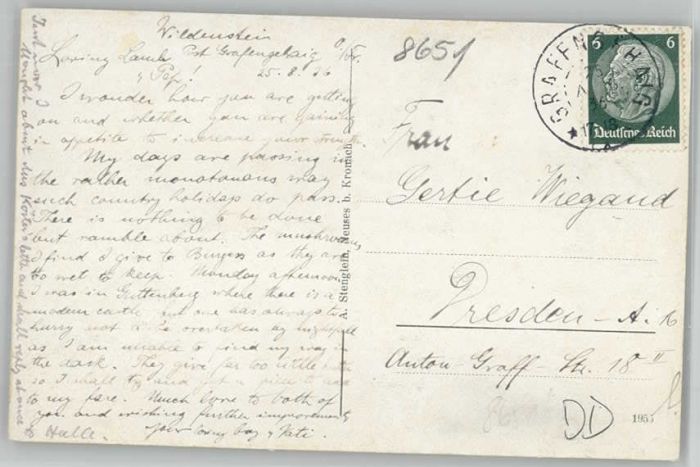 Wildenstein
Post Grafengehaig
Loving Lamb
" Pep!
25.8.36
I wonder how you are getting
on and whether you are gaining
in appetite to increase your
My days are passing in
the rather monotonous way
such country holidays do pass.
There is nothing to be done
but ramble about. The mushrooms
I find I give to Burgers as they are
too wet to keep. Monday afternoon
I was in Guttenberg where there is a
modern castle, but one has always to
hurry not to be overtaken by nightfall
as I am unable to find my way in
the dark. They give far too little
so I shall try and get a
to my fare. Much love to both of
you and wishing further improvement
your loving boy & Kati.
Just now I
thought about Mrs Köster's letter and shall reply at once
to Halle.
A. Stenglein, Neuses b. Kronach
8651
6 6
Deutsches Reich
GRAFENGEHAIG
Frau
Gertie Wiegand
Dresden-A. 16
Anton-Graff-Str. 18 II
DD
1955